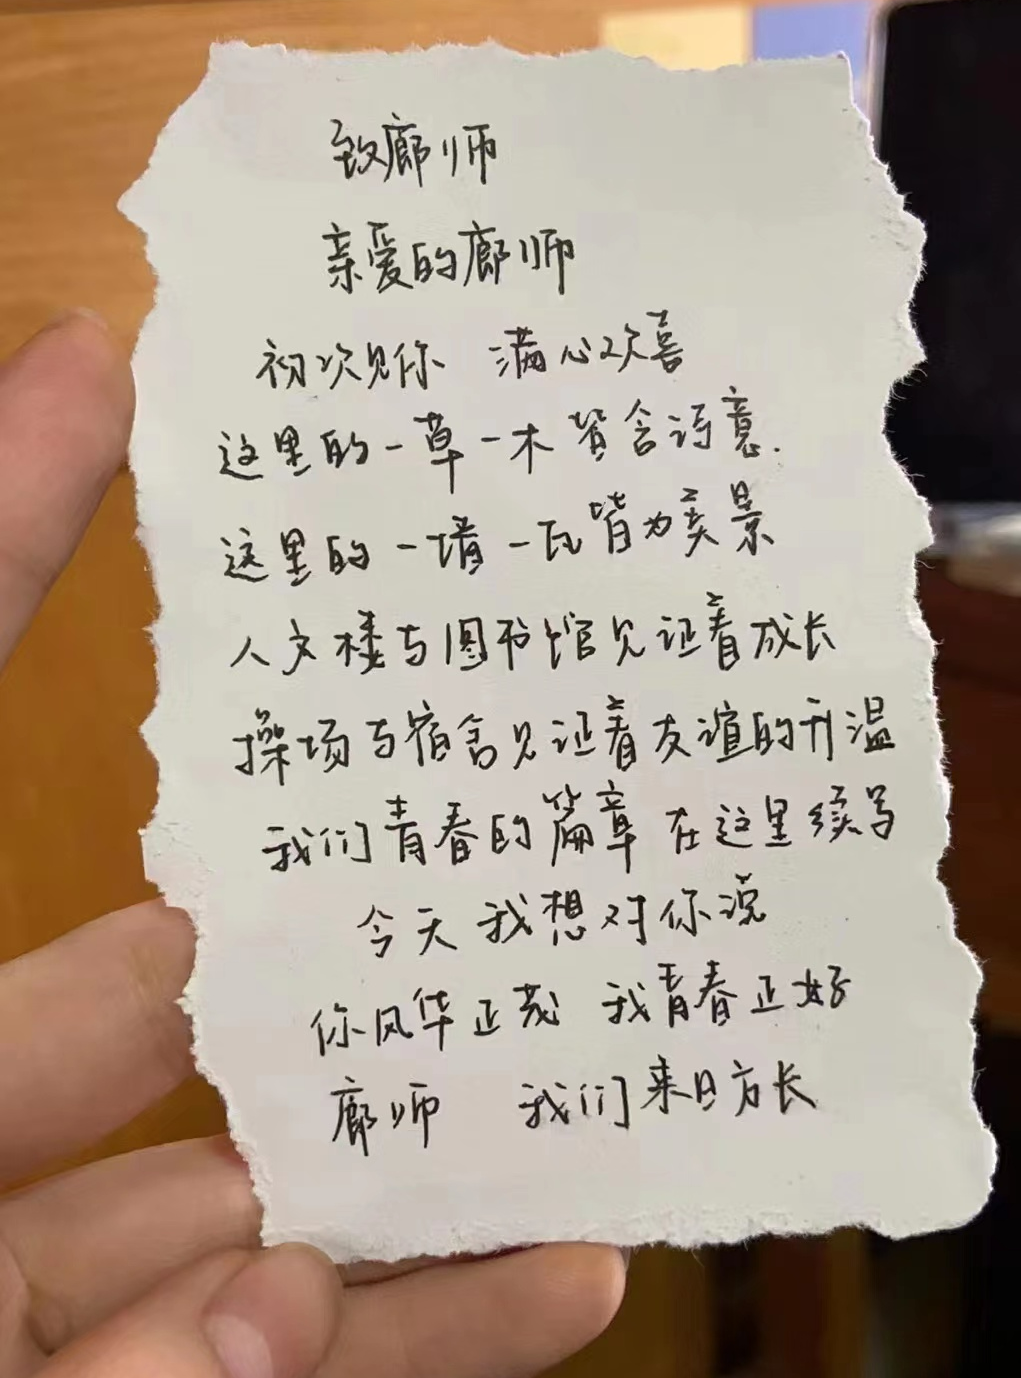 致廊师
亲爱的廊师
初次见你 满心欢喜
这里的一草一木皆含诗意.
这里的一墙一瓦皆为美景
人文楼与图书馆见证着成长
操场与宿舍见证着友谊的升温
我们青春的篇章在这里续写
今天 我想对你说
你风华正茂 我青春正好
廊师 我们来日方长